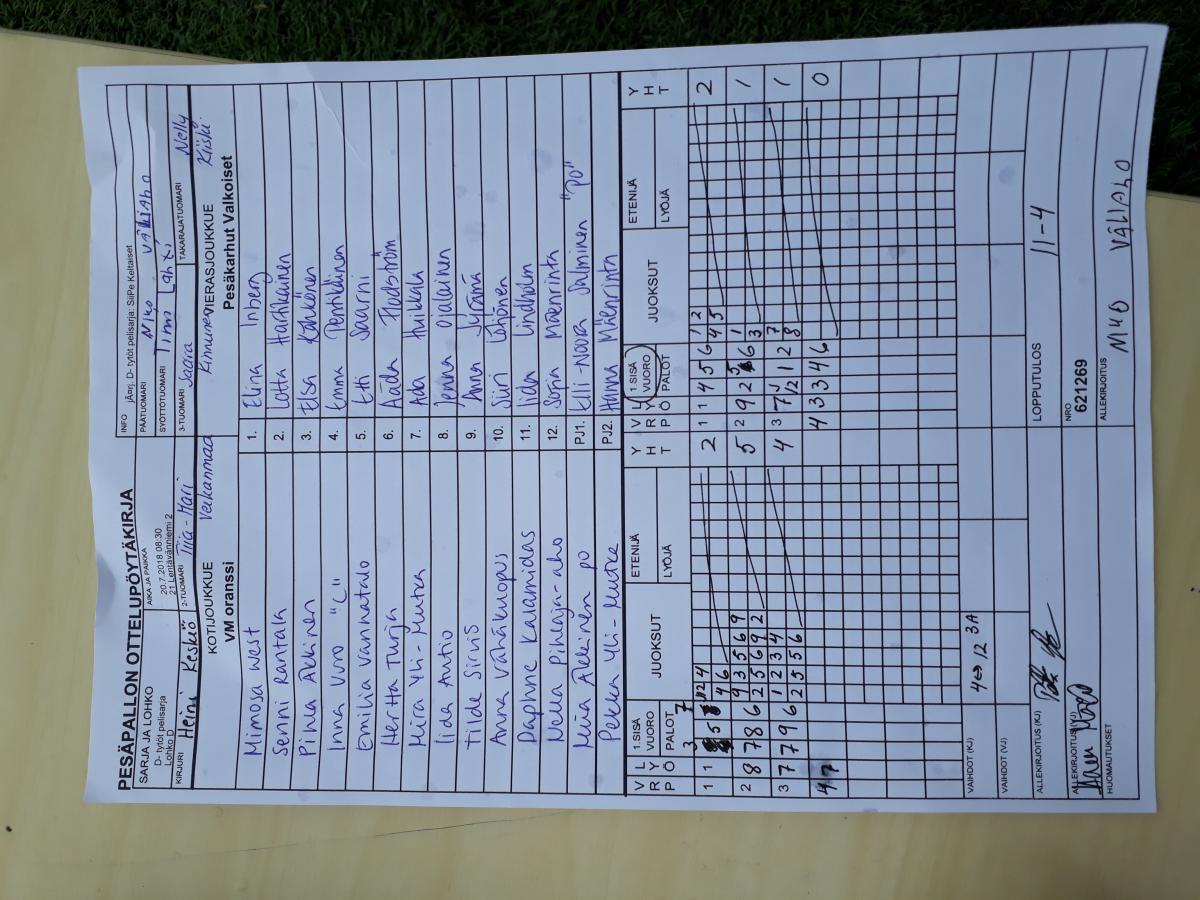 PESÄPALLON OTTELUPÖYTÄKIRJA
SARJA JA LOHKO
D- tytöt pelisarja
Lohko D
AIKA JA PAIKKA
20.7.2018 08:30
21 Lentävänniemi 2
INFO jÄrj. D- tytöt pelisarja: SiiPe Keltaiset
PÄÄTUOMARI Niko Väliaho
SYÖTTÖTUOMARI Timi Lahti
KIRJURI Heini Keskiö
2-TUOMARI Tiia-Mari Veikanmaa
3-TUOMARI Saara Kinnunen
TAKARAJATUOMARI Nelly Kiiski
KOTIJOUKKUE
VM oranssi
VIERASJOUKKUE
Pesäkarhut Valkoiset
Mimosa West 1. Elina Inberg
Senni Rantala 2. Lotta Haatikainen
Pinla 3. Elsa Kähkönen
Inna Vuo "C" 4. Emma Penttilinen
Emilia Vannatalo 5. Etti Saarni
Hertta Turja 6. Aada Flodström
Miira Yli-Mutka 7. Ada Huikkala
Iida Autio 8. Jenna Ojalainen
Tilde Sirvis 9. Anna Sypämä
Anna Vähäkuopus 10. Siiri
Daphne Kalamidas 11. Iida Lindholm
Nella Pihlaja-aho 12. Sonja Mäenrinta
Miia po PJ1. Elli-Noora Salminen "PO"
Pekka Yli-Mutka PJ2. Hanna Mäenrinta
V R P L Y Ö 1.SISÄ VUORO PALOT JUOKSUT ETENIJÄ LYÖJÄ Y H T V R P L Y Ö 1.SISÄ VUORO PALOT JUOKSUT ETENIJÄ LYÖJÄ Y H T
1 1 3 5 7 12 4 2 1 1 4 5 6 1 2 2
4 6 4 5
2 8 7 8 6 9 3 5 6 9 5 2 9 2 5 6 1 1
2 5 6 9 2 3
3 7 7 9 6 1 2 3 4 4 3 7 12 1 2 7 1
2 5 5 6 8
4 7 4 3 3 4 6 0
VAIHDOT (KJ) 4↔12 3A
VAIHDOT (VJ)
LOPPUTULOS 11-4
ALLEKIRJOITUS (KJ)
NRO
621269
ALLEKIRJOITUS (VJ)
ALLEKIRJOITUS NIKO VÄLIAHO
HUOMAUTUKSET